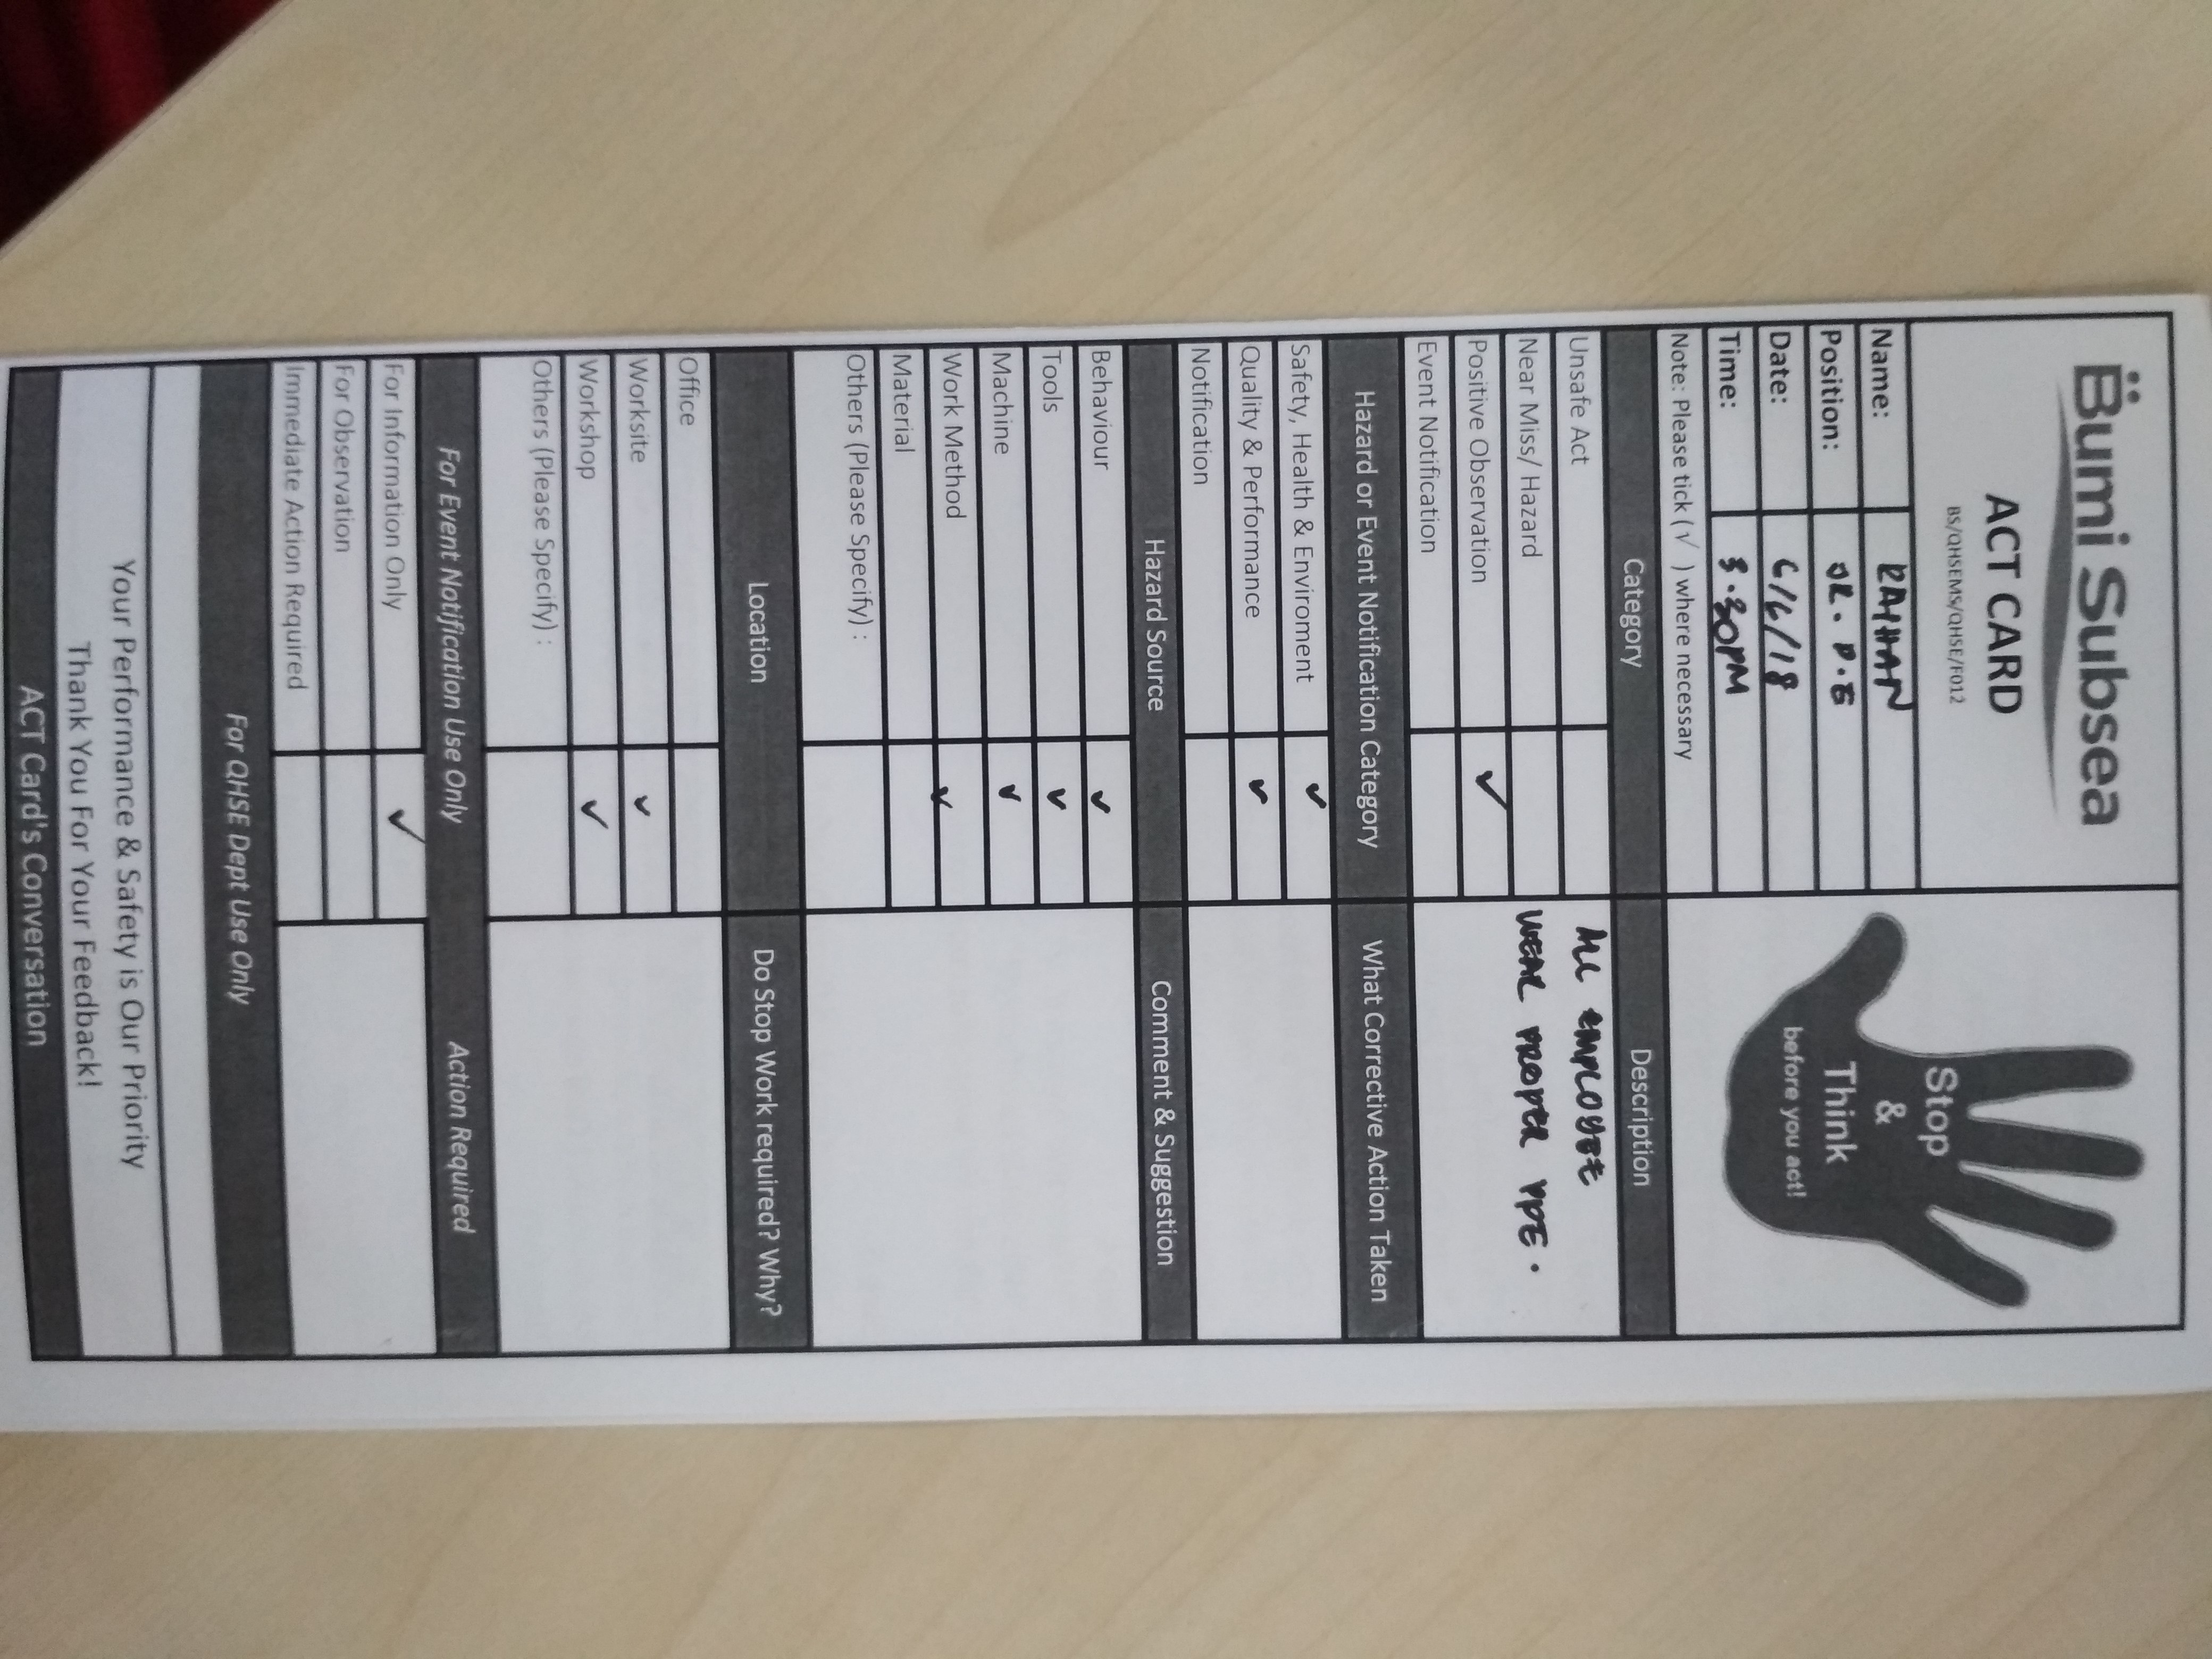 Bumi Subsea
ACT CARD
BS/QHSEMS/QHSE/F012
Stop
&
Think
before you act!
Name: RAIHAN
Position: JR. P.E
Date: 6/6/18
Time: 3.30PM
Note: Please tick (√ ) where necessary
Category Description
Unsafe Act
Near Miss/ Hazard
Positive Observation ✓
Event Notification
All employee
wear proper PPE.
Hazard or Event Notification Category What Corrective Action Taken
Safety, Health & Enviroment ✓
Quality & Performance ✓
Notification
Hazard Source Comment & Suggestion
Behaviour ✓
Tools ✓
Machine ✓
Work Method ✓
Material
Others (Please Specify) :
Location Do Stop Work required? Why?
Office
Worksite ✓
Workshop ✓
Others (Please Specify) :
For Event Notification Use Only Action Required
For Information Only ✓
For Observation
Immediate Action Required
For QHSE Dept Use Only
Your Performance & Safety is Our Priority
Thank You For Your Feedback!
ACT Card's Conversation